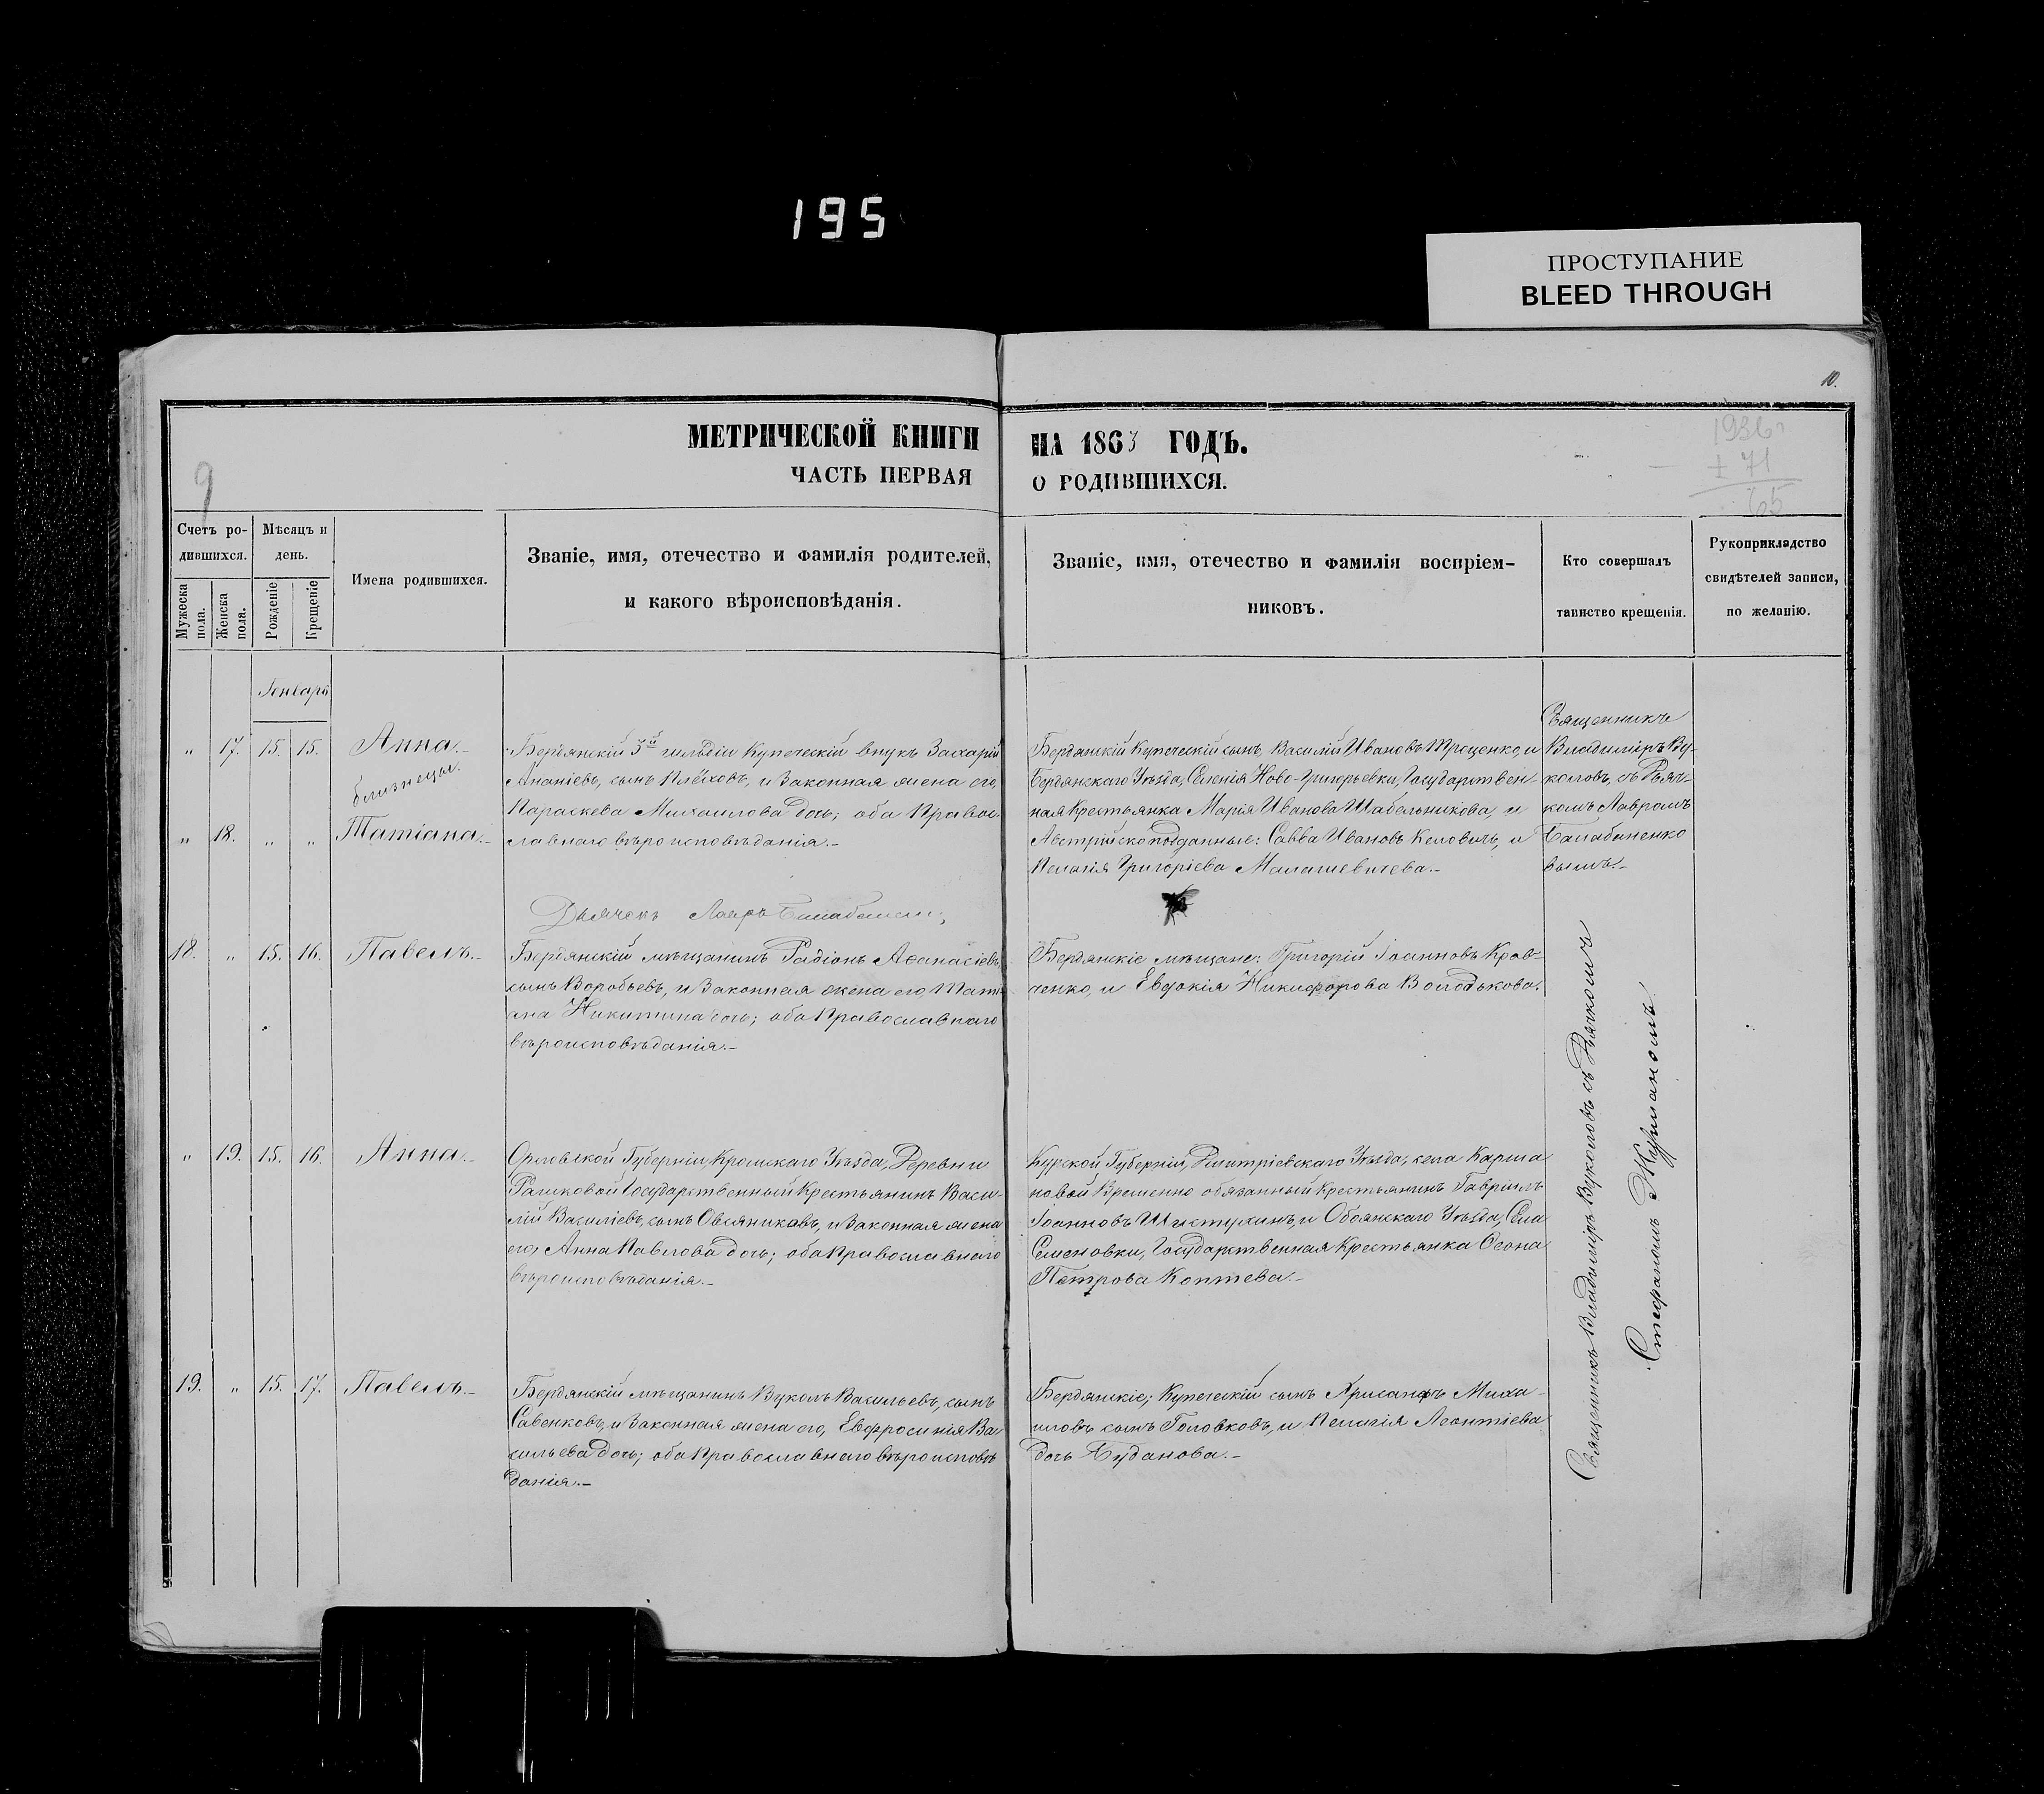 195
ПРОСТУПАНИЕ
BLEED THROUGH
10.
МЕТРИЧЕСКОЙ КНИГИ НА 1863 ГОДЪ.
ЧАСТЬ ПЕРВАЯ О РОДИВШИХСЯ.
9
1936
71
65
Счетъ ро-
дившихся.
Мужеска пола.
Женска пола.
Мѣсяцъ и
день.
Рожденіе
Крещеніе
Имена родившихся.
Званіе, имя, отечество и фамилія родителей,
и какого вѣроисповѣданія.
Званіе, имя, отечество и фамилія воспріем-
никовъ.
Кто совершалъ
таинство крещенія.
Рукоприкладство
свидѣтелей записи,
по желанію.
Генваря
„ 17. 15. 15. Анна.-
близнецы.
„ 18. „ „ Татіана.-
Бердянскій 3й гильдіи Купеческій внукъ Захарій
Ананіевъ, сынъ Плѣховъ, и Законная жена его,
Параскева Михаилова дочь; оба Правос-
лавнаго вѣроисповѣданія.-
Бердянскій Купеческій сынъ Василій Ивановъ Троценко, и
Бердянскаго Уѣзда, Селенія Ново-Григорьевки, Государствен-
ная Крестьянка Марія Иванова Шабельникова, и
Австрійскоподданные: Савва Ивановъ Келовичъ, и
Пелагія Григоріева Малашевичева.-
Священникъ
Владиміръ Ву-
коловъ, съ Дьяч-
комъ Лавромъ
Балабаненко
вымъ.-
Дьячекъ Лавръ
18. „ 15. 16. Павелъ.-
Бердянскій мѣщанинъ Радіонъ Аѳанасіевъ,
сынъ Воробьевъ, и Законная жена его, Тати-
ана Никитина дочь; оба Православнаго
вѣроисповѣданія.-
Бердянскіе мѣщане: Григорій Іоанновъ Крав-
ченко, и Евдокія Никифорова Володькова.
„ 19. 15. 16. Анна.-
Орловской Губерніи, Кромскаго Уѣзда, Деревни
Рашковой Государственный Крестьянинъ Васи-
лій Василіевъ, сынъ Овсяниковъ, и Законная жена
его, Анна Павлова дочь; оба Православнаго
вѣроисповѣданія.-
Курской Губерніи, Димитріевскаго Уѣзда, села Карма
новой Временно обязанный Крестьянинъ Гавріилъ
Іоанновъ Шистухинъ, и Обоянскаго Уѣзда, Села
Семеновки, Государственная Крестьянка Ѳеона
Петрова Коптева.-
19. „ 15. 17. Павелъ.-
Бердянскій мѣщанинъ Вуколъ Васильевъ, сынъ
Савенковъ, и Законная жена его, Евфросинія Ва-
сильева дочь; оба Православнаго вѣроисповѣ
данія.-
Бердянскіе; Купеческій сынъ Хрисанфъ Миха-
иловъ сынъ Головковъ, и Пелагія Леонтіева
дочь Буданова.-
Священникъ Владиміръ Вуколовъ съ Дьячкомъ
Стефаномъ Журманомъ.